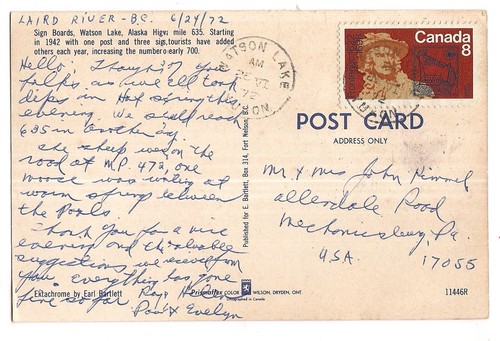 LAIRD RIVER - B.C. 6/24/72
Sign Boards, Watson Lake, Alaska Highway mile 635. Starting
in 1942 with one post and three signs, tourists have added
others each year, increasing the number early 700.
Hello, Thought of you
folks, as we all took
dips in Hot springs this
evening. We still reach
635 in another day.
sheep was on the
road at M.P. 472, one
moose was at
warm spring between
the Pools.
Thank you for a nice
evening and the valuable
suggestions, we received from
you. Everything has gone
fine so far
Paul & Evelyn
Ektachrome by Earl Bartlett
Published for E. Bartlett, Box 314, Fort Nelson, B.C.
WATSON LAKE
AM
72
YUKON
Canada
8
POST CARD
ADDRESS ONLY
Mr & Mrs John Kimmel
Allendale Road
Mechanicsburg, Pa.
U.S.A. 17055
COLOR WILSON, DRYDEN, ONT.
Lithographed in Canada
11446R